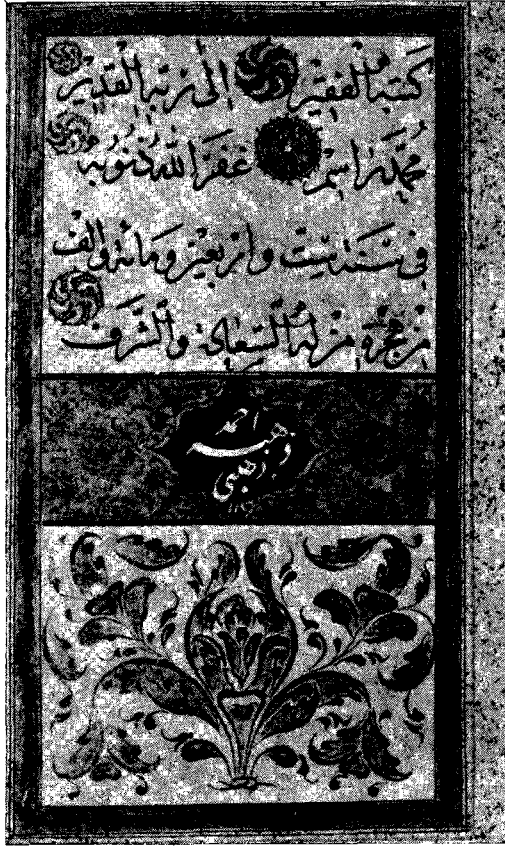 كتبه الفقير إلى ربه القدير
محمد راسم غفر الله ذنوبه
في سنة ست وأربعين ومائة وألف
من هجرة من له السعادة والشرف
ذهبه
احمد